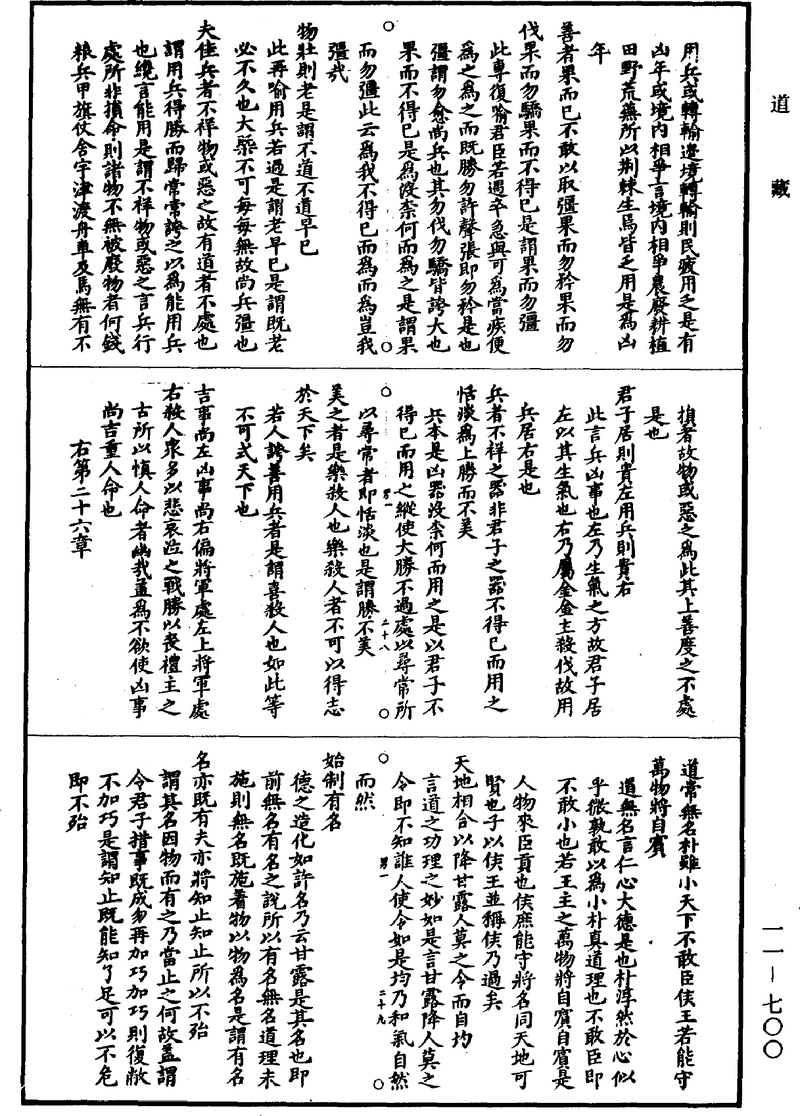 道藏
用兵或轉輸邊境轉輸則民疲用之是有
凶年或境内相爭言境内相爭農廢耕植
田野荒蕪所以荆棘生焉皆乏用是爲凶
年
善者果而已不敢以取彊果而勿矜果而勿
伐果而勿驕果而不得已是謂果而勿彊
此專復喻君臣若遇卒急與可爲當疾便
爲之爲之而既勝勿許聲張即勿矜是也
彊謂勿愈尚兵也其勿伐勿驕皆誇大也
果而不得已是爲没柰何而爲之是謂果
而勿彊此云爲我不得已而爲而爲豈我
彊哉
物壯則老是謂不道不道早已
此再喻用兵若過是謂老早已是謂既老
必不久也大槩不可每每無故尚兵彊也
夫佳兵者不祥物或惡之故有道者不處也
謂用兵得勝而歸常常誇之以爲能用兵
也纔言能用是謂不祥物或惡之言兵行
處所非損命則諸物不無被廢物者何錢
粮兵甲旗仗舍宇津渡舟車及馬無有不
損者故物或惡之爲此其上善度之不處
是也
君子居則貴左用兵則貴右
此言兵凶事也左乃生氣之方故君子居
左以其生氣也右乃屬金金主殺伐故用
兵居右是也
兵者不祥之器非君子之器不得已而用之
恬淡爲上勝而不美
兵本是凶器没柰何而用之是以君子不
得已而用之縱使大勝不過處以尋常所
以尋常者即恬淡也是謂勝不美
男一
二十八
美之者是樂殺人也樂殺人者不可以得志
於天下矣
若人誇善用兵者是謂喜殺人也如此等
不可式天下也
吉事尚左凶事尚右偏將軍處左上將軍處
右殺人衆多以悲哀泣之戰勝以喪禮主之
古所以慎人命者幽哉蓋爲不欲使凶事
尚吉重人命也
右第二十六章
道常無名朴雖小天下不敢臣侯王若能守
萬物將自賓
道無名言仁心大德是也朴淳然於心似
乎微孰敢以爲小朴真道理也不敢臣即
不敢小也若王主之萬物將自賓自賓是
人物來臣貢也侯庶能守將名同天地可
賢也予以侯王並稱侯乃過矣
天地相合以降甘露人莫之令而自均
言道之功理之妙如是言甘露降人莫之
令即不知誰人使令如是均乃和氣自然
而然
男一
二十九
始制有名
德之造化如許名乃云甘露是其名也即
前無名有名之説所以有名無名道理未
施則無名既施着物以物爲名是謂有名
名亦既有夫亦將知止知止所以不殆
謂其名因物而有之乃當止之何故蓋謂
令君子措事既成勿再加巧加巧則復敝
不加巧是謂知止既能知了足可以不危
即不殆
一一—七〇〇